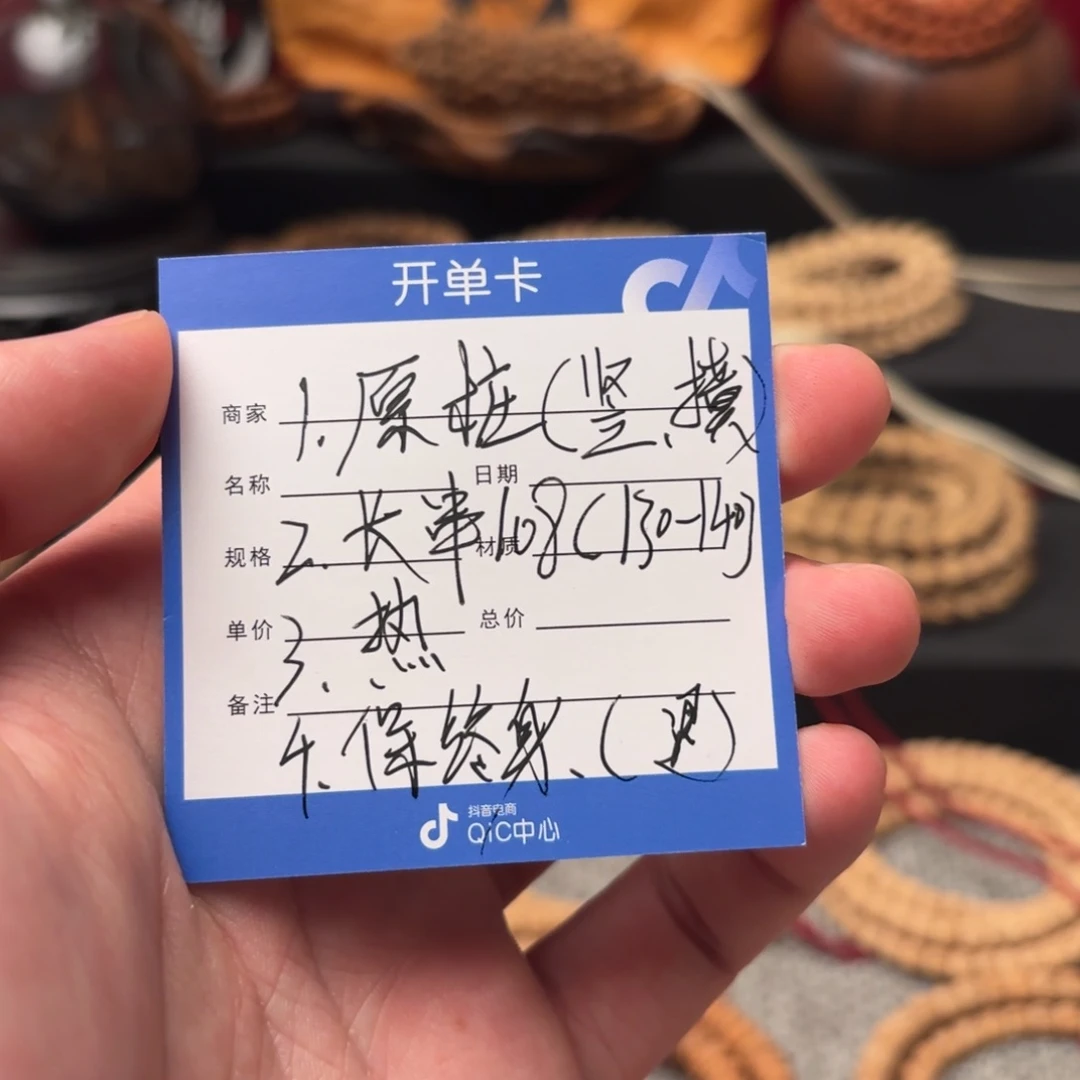 开单卡
商家 1.原桩(竖、横)
名称 日期
规格 2.长串 材质 108(130-140)
单价 3.热 总价
备注
4.保终身、(退)
抖音电商
QIC中心